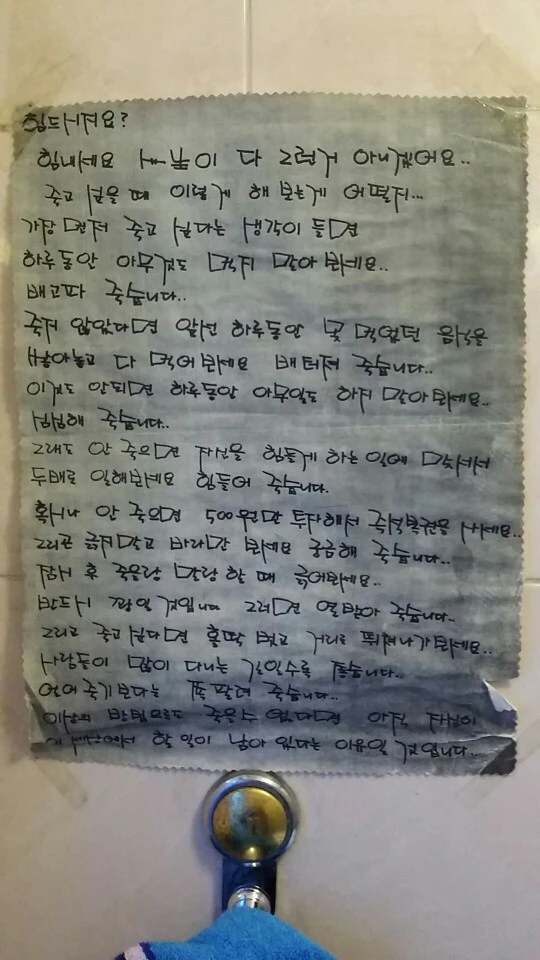 힘드시져요?
힘내세요 사는 삶이 다 그런거 아니겠어요..
죽고 싶을 때 이렇게 해 보는게 어떨지...
가장 먼저 죽고 싶다는 생각이 들면
하루동안 아무것도 먹지 말아 봐세요..
배고파 죽습니다..
죽지 않았다면 앞선 하루동안 못 먹었던 음식을
쌓아놓고 다 먹어봐세요 배터져 죽습니다..
이것도 안되면 하루동안 아무일도 하지 말아봐세요..
심심해 죽습니다..
그래도 안 죽으면 자신을 힘들게 하는 일에 맞서서
두배로 일해봐세요 힘들어 죽습니다.
혹시나 안 죽으면 500원만 투자해서 즉석복권을 사세요..
그리곤 긁지말고 바라만 봐세요 궁금해 죽습니다..
잠시 후 죽을랑 말랑 할 때 긁어봐세요..
반드시 꽝일 것입니다 그러면 열받아 죽습니다..
그리고 죽고싶다면 홀딱 벗고 거리로 뛰쳐나가봐세요..
사람들이 많이 다니는 길일수록 좋습니다..
얼어 죽기보다는 쪽팔려 죽습니다..
이상의 방법으로도 죽을수 없다면 아직 자신이
이 세상에서 할 일이 남아 있다는 이유일 것입니다...